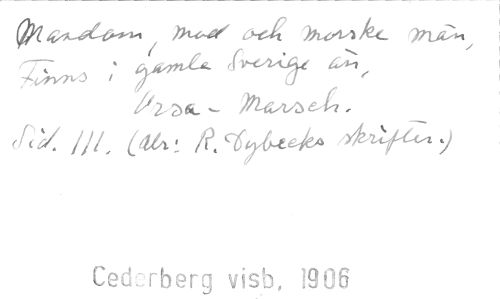 Mandom, mod och morske män,
Finns i gamla Sverige än,
Orsa - Marsch.
Sid. 111. (ur: R. Dybecks skrifter.)
Cederberg visb, 1906